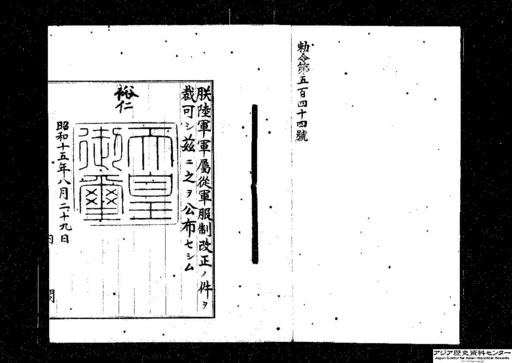 勅令第五百四十四號
朕陸軍軍屬從軍服制改正ノ件ヲ
裁可シ茲ニ之ヲ公布セシム
裕仁
天皇
御璽
昭和十五年八月二十九日
内閣
アジア歴史資料センター
Japan Center for Asian Historical Records